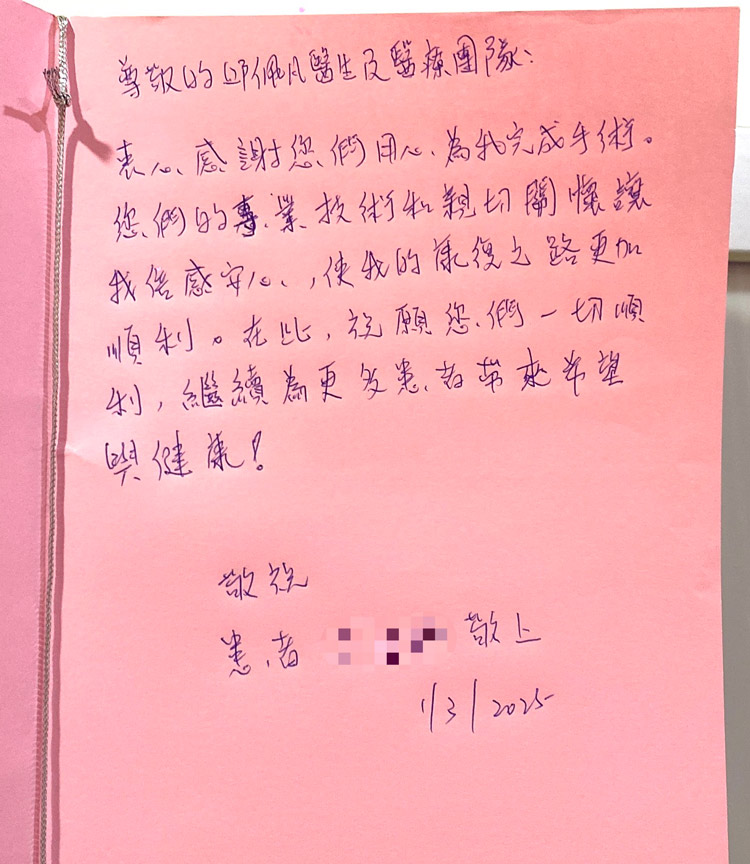 尊敬的邱佩凡醫生及醫療團隊：
衷心感謝您們用心為我完成手術。
您們的專業技術和親切關懷讓
我倍感安心，使我的康復之路更加
順利。在此，祝願您們一切順
利，繼續為更多患者帶來希望
與健康！
敬祝
患者 敬上
1/3/2025